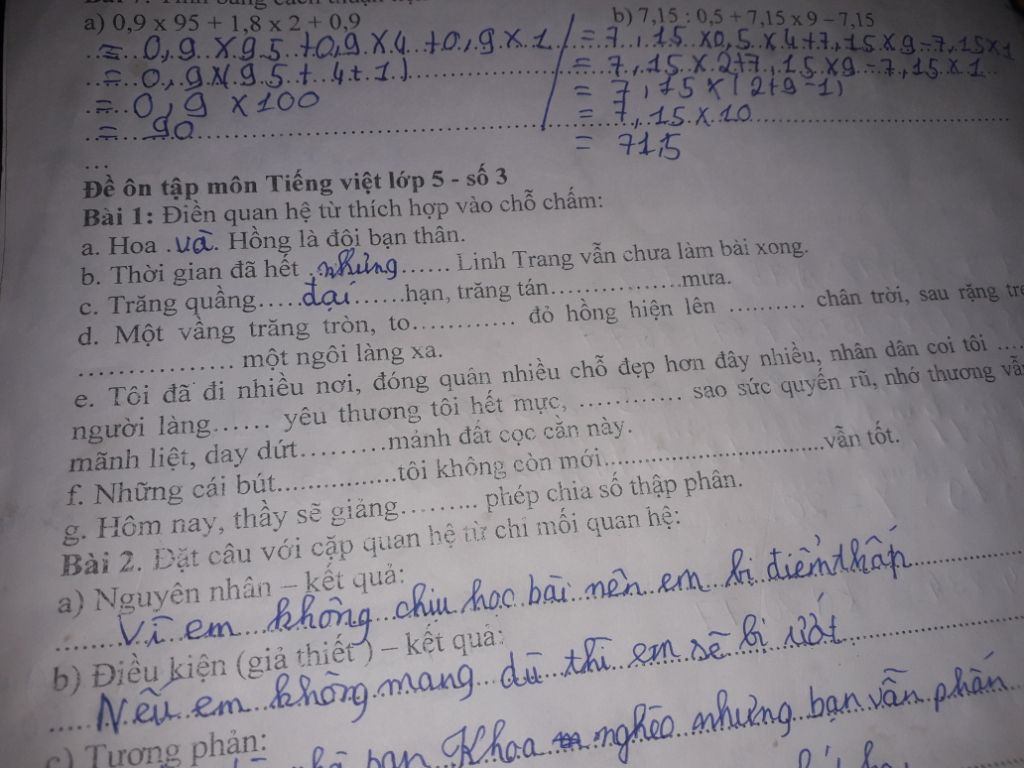 a) 0,9 x 95 + 1,8 x 2 + 0,9
= 0,9 x 95 + 0,9 x 4 + 0,9 x 1
= 0,9 x (95 + 4 + 1)
= 0,9 x 100
= 90
b) 7,15 : 0,5 + 7,15 x 9 – 7,15
= 7,15 x 0,5 x 4 + 7,15 x 9 - 7,15 x 1
= 7,15 x 2 + 7,15 x 9 - 7,15 x 1
= 7,15 x (2+9-1)
= 7,15 x 10
= 71,5
...
Đề ôn tập môn Tiếng việt lớp 5 - số 3
Bài 1: Điền quan hệ từ thích hợp vào chỗ chấm:
a. Hoa .và. Hồng là đôi bạn thân.
b. Thời gian đã hết .nhưng...... Linh Trang vẫn chưa làm bài xong.
c. Trăng quầng.....đại......hạn, trăng tán.................mưa.
d. Một vầng trăng tròn, to............ đỏ hồng hiện lên ......... chân trời, sau rặng tre
.................. một ngôi làng xa.
e. Tôi đã đi nhiều nơi, đóng quân nhiều chỗ đẹp hơn đây nhiều, nhân dân coi tôi ....
người làng...... yêu thương tôi hết mực, ............ sao sức quyến rũ, nhớ thương vẫn
mãnh liệt, day dứt..........mảnh đất cọc cằn này.
f. Những cái bút................tôi không còn mới.............................vẫn tốt.
g. Hôm nay, thầy sẽ giảng......... phép chia số thập phân.
Bài 2. Đặt câu với cặp quan hệ từ chỉ mối quan hệ:
a) Nguyên nhân – kết quả:
Vì em không chịu học bài nên em bị điểm thấp
b) Điều kiện (giả thiết ) – kết quả:
Nếu em không mang dù thì em sẽ bị ướt
c) Tương phản:
bạn Khoa nghèo nhưng bạn vẫn phấn